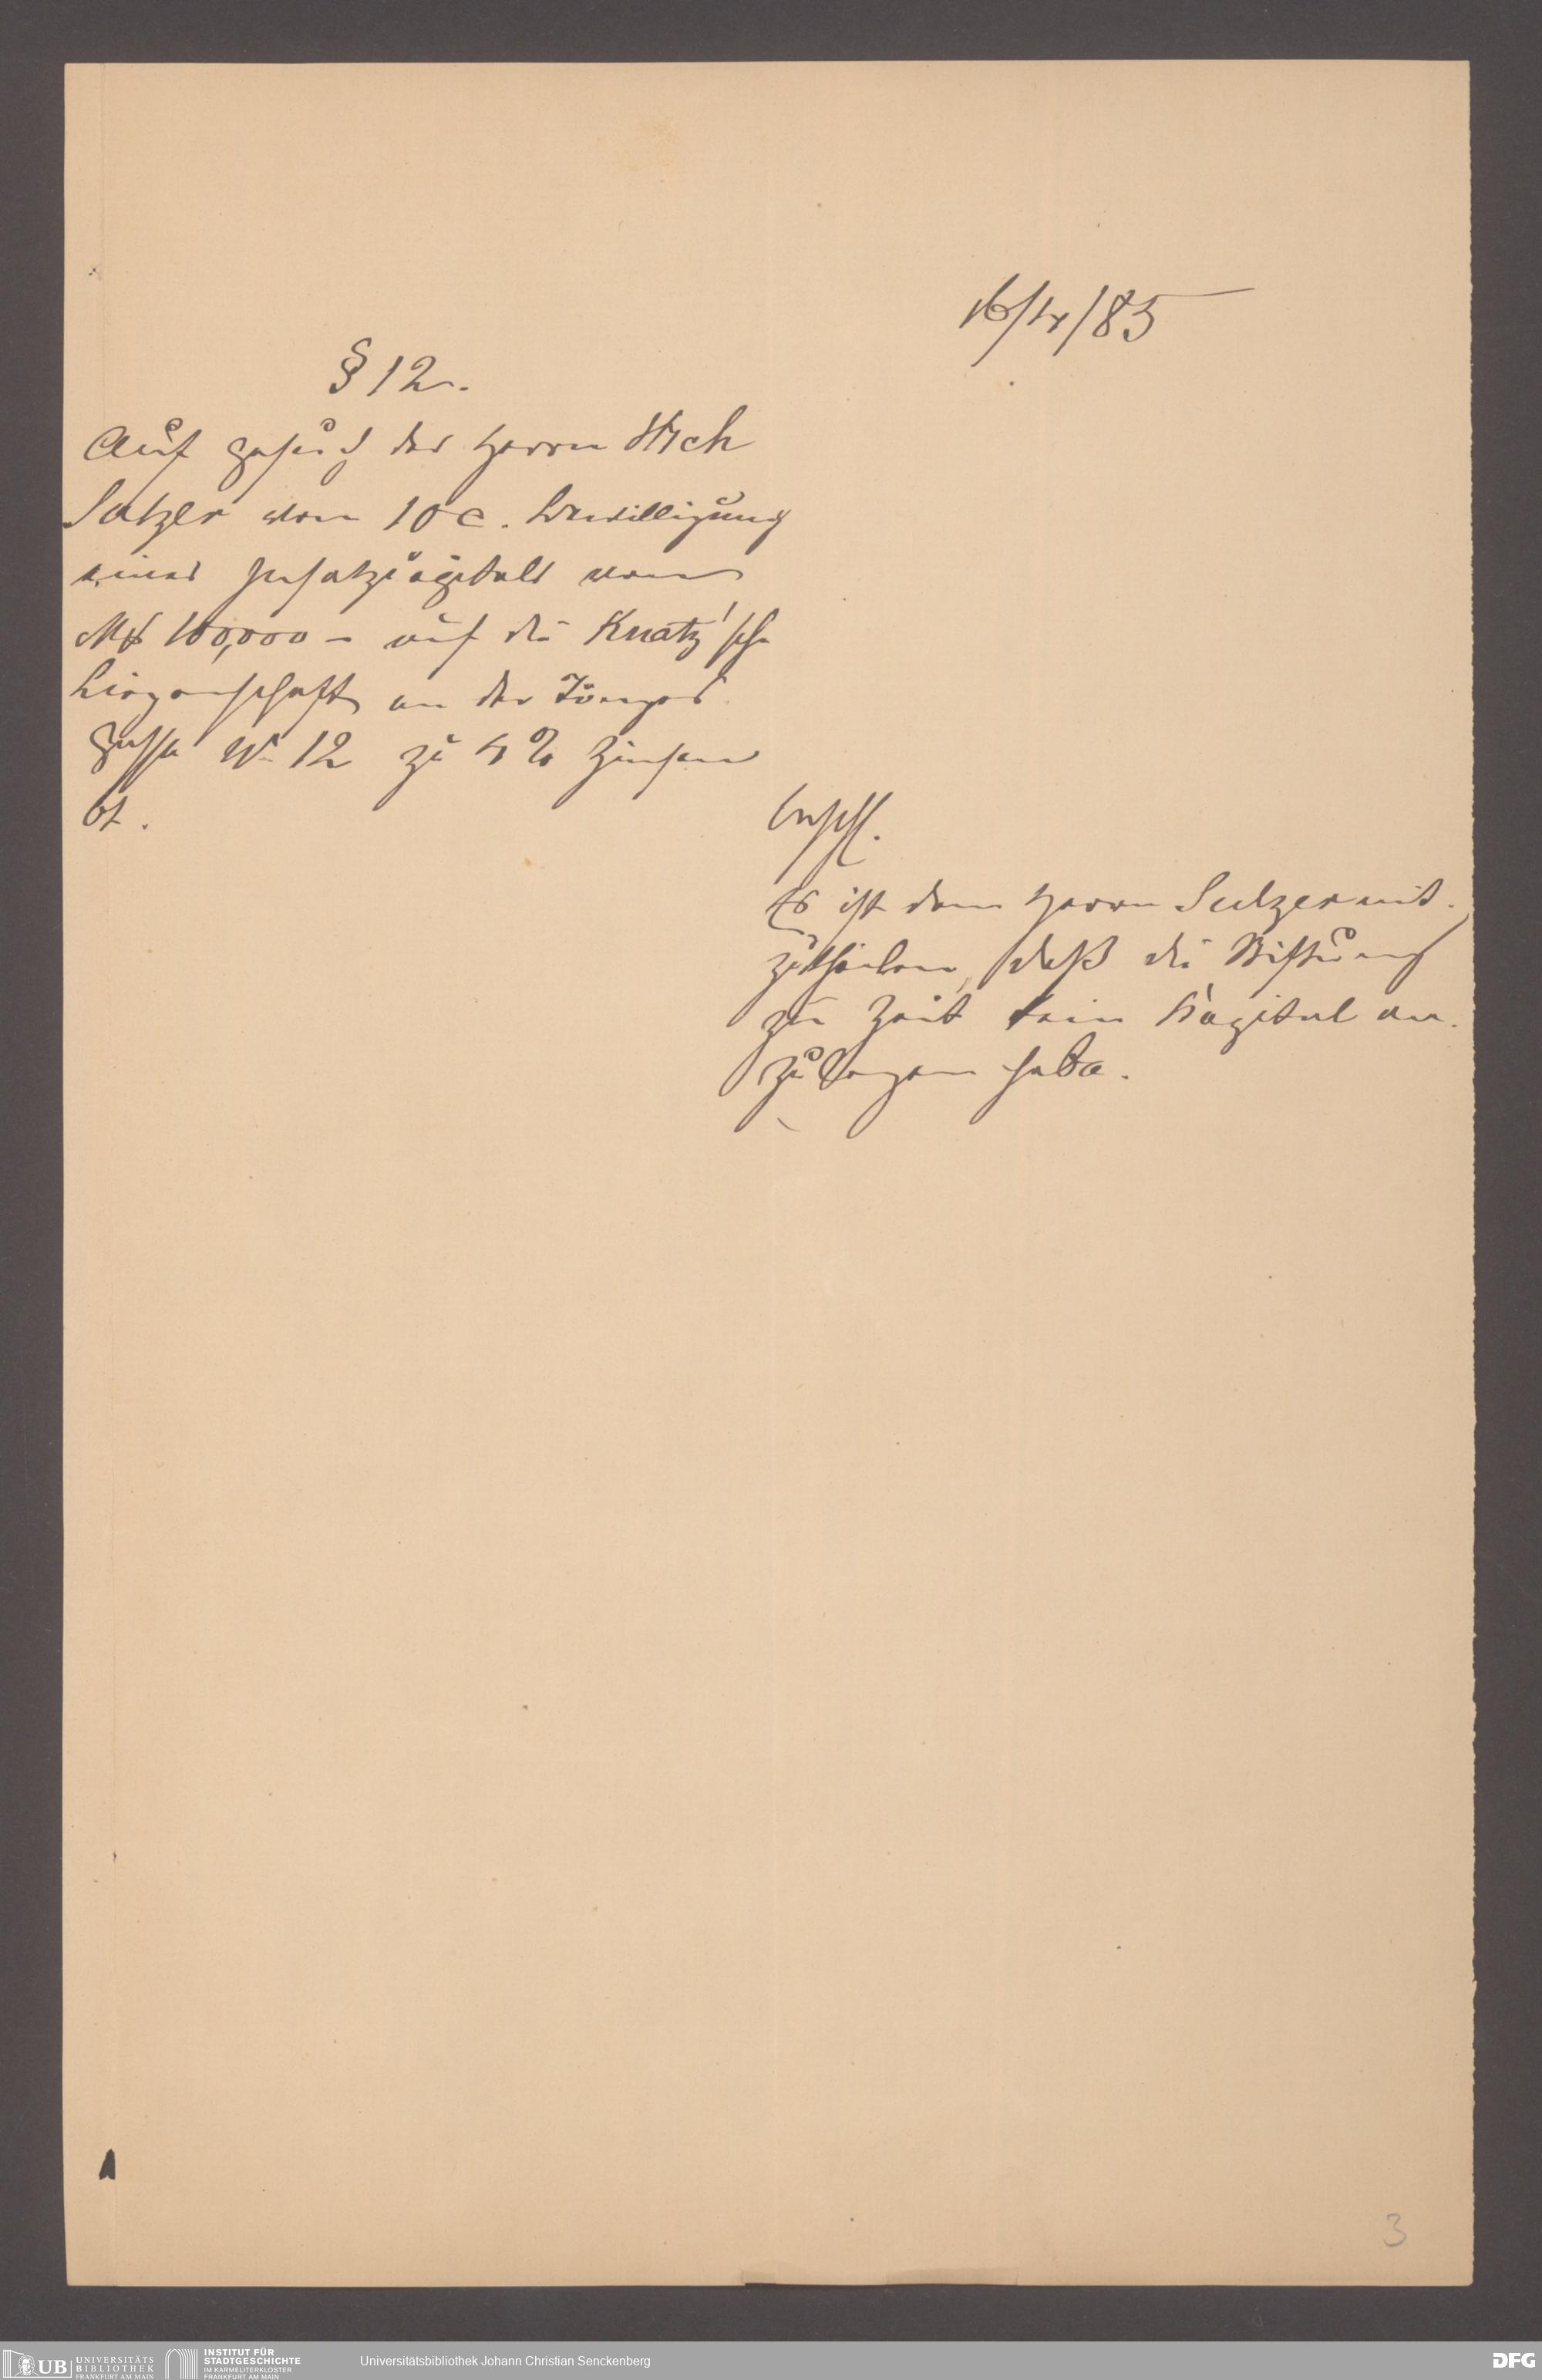 16/IV/85
§ 12.
Auf Gesuch des Herrn Mich
Sulzer vom 10 c. Bewilligung
eines Insatzkapitals von
Mk 100,000 – auf die Knatz'sche
Liegenschaft an der Tönges
gasse No 12 zu 4 % Zinsen
btr.
beschl.
Es ist dem Herrn Sulzer mit-
zutheilen, daß die Stiftung
zur Zeit kein Kapital an-
zulegen habe.
3
UB UNIVERSITÄTS
BIBLIOTHEK
FRANKFURT AM MAIN
INSTITUT FÜR
STADTGESCHICHTE
IM KARMELITERKLOSTER
FRANKFURT AM MAIN
Universitätsbibliothek Johann Christian Senckenberg
DFG